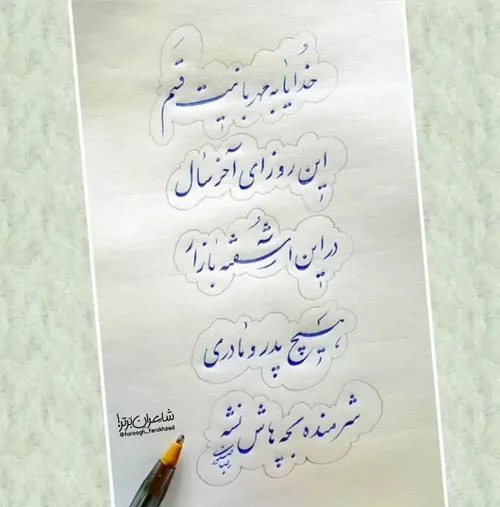 خدایا به مهربانیت قسم
این روزای آخر سال
در این آشفته بازار
هیچ پدر و مادری
شرمنده بچه هاش نشه
شاعران برتر!
@foroogh_farokhzad